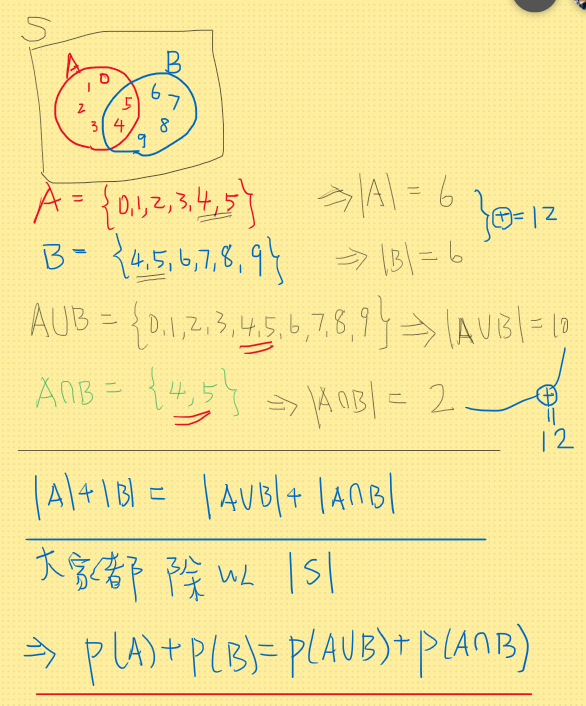 S
A B
0 1 2 3 5 4 6 7 8 9
A = {0,1,2,3,4,5} ⇒ |A| = 6
} ⊕ = 12
B = {4,5,6,7,8,9} ⇒ |B| = 6
A∪B = {0,1,2,3,4,5,6,7,8,9} ⇒ |A∪B| = 10
A∩B = {4,5} ⇒ |A∩B| = 2
⊕
=
12
|A|+|B| = |A∪B|+|A∩B|
大家都除以 |S|
⇒ P(A)+P(B)=P(A∪B)+P(A∩B)